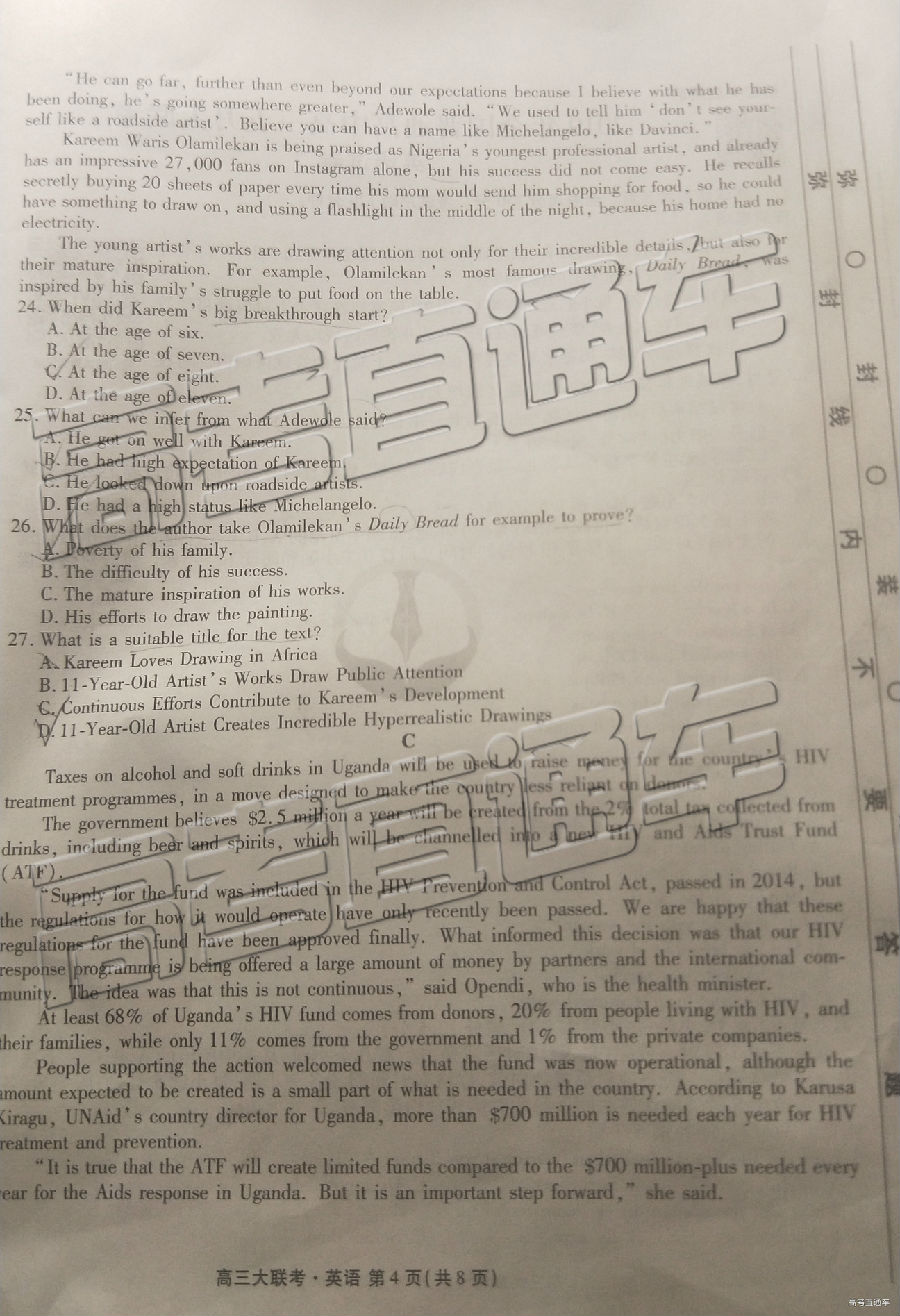 "He can go far, further than even beyond our expectations because I believe with what he has
been doing, he's going somewhere greater," Adewole said. "We used to tell him 'don't see your-
self like a roadside artist'. Believe you can have a name like Michelangelo, like Davinci."
Kareem Waris Olamilekan is being praised as Nigeria's youngest professional artist, and already
has an impressive 27,000 fans on Instagram alone, but his success did not come easy. He recalls
secretly buying 20 sheets of paper every time his mom would send him shopping for food, so he could
have something to draw on, and using a flashlight in the middle of the night, because his home had no
electricity.
The young artist's works are drawing attention not only for their incredible details, but also for
their mature inspiration. For example, Olamilekan's most famous drawing, Daily Bread, was
inspired by his family's struggle to put food on the table.
24. When did Kareem's big breakthrough start?
A. At the age of six.
B. At the age of seven.
C. At the age of eight.
D. At the age of eleven.
25. What can we infer from what Adewole said?
A. He got on well with Kareem.
B. He had high expectation of Kareem.
C. He looked down upon roadside artists.
D. He had a high status like Michelangelo.
26. What does the author take Olamilekan's Daily Bread for example to prove?
A. Poverty of his family.
B. The difficulty of his success.
C. The mature inspiration of his works.
D. His efforts to draw the painting.
27. What is a suitable title for the text?
A. Kareem Loves Drawing in Africa
B. 11-Year-Old Artist's Works Draw Public Attention
C. Continuous Efforts Contribute to Kareem's Development
D. 11-Year-Old Artist Creates Incredible Hyperrealistic Drawings
C
Taxes on alcohol and soft drinks in Uganda will be used to raise money for the country's HIV
treatment programmes, in a move designed to make the country less reliant on donors.
The government believes $2.5 million a year will be created from the 2% total tax collected from
drinks, including beer and spirits, which will be channelled into a new HIV and Aids Trust Fund
(ATF).
"Supply for the fund was included in the HIV Prevention and Control Act, passed in 2014, but
the regulations for how it would operate have only recently been passed. We are happy that these
regulations for the fund have been approved finally. What informed this decision was that our HIV
response programme is being offered a large amount of money by partners and the international com-
munity. The idea was that this is not continuous," said Opendi, who is the health minister.
At least 68% of Uganda's HIV fund comes from donors, 20% from people living with HIV, and
their families, while only 11% comes from the government and 1% from the private companies.
People supporting the action welcomed news that the fund was now operational, although the
amount expected to be created is a small part of what is needed in the country. According to Karusa
Kiragu, UNAid's country director for Uganda, more than $700 million is needed each year for HIV
treatment and prevention.
"It is true that the ATF will create limited funds compared to the $700 million-plus needed every
year for the Aids response in Uganda. But it is an important step forward," she said.
高三大联考·英语 第4页(共8页)
弥 封 线 内 不 要 答
弥 封 装
高考直通车
高考直通车
高考直通车